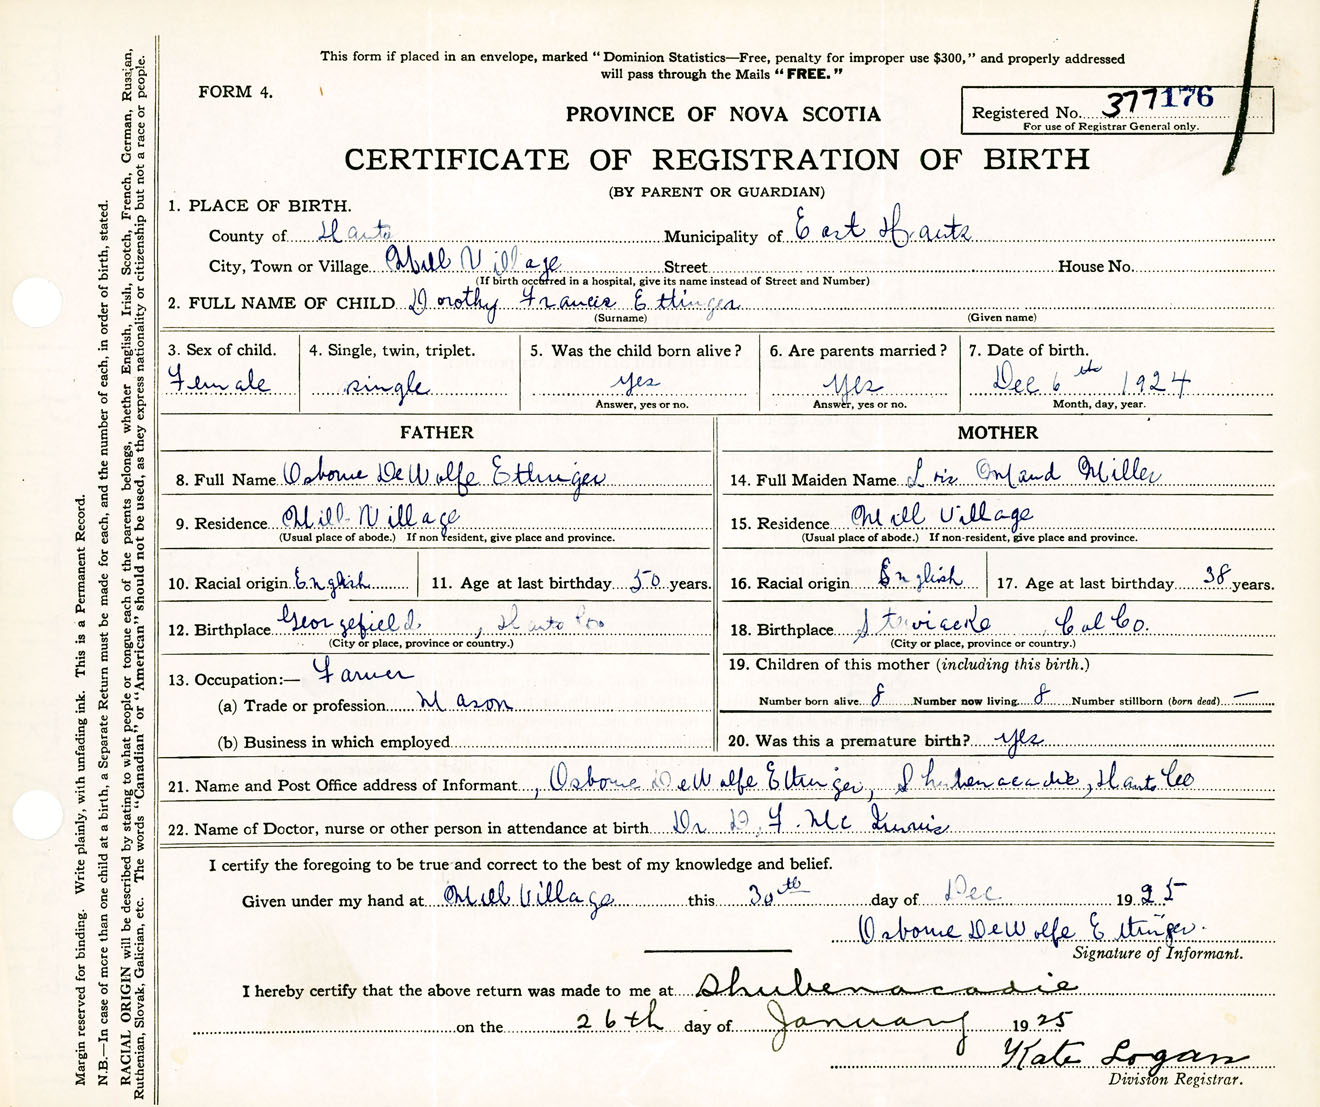 This form if placed in an envelope, marked "Dominion Statistics—Free, penalty for improper use $300," and properly addressed
will pass through the Mails "FREE."
FORM 4.
PROVINCE OF NOVA SCOTIA
Registered No. 377176
For use of Registrar General only.
CERTIFICATE OF REGISTRATION OF BIRTH
(BY PARENT OR GUARDIAN)
1. PLACE OF BIRTH.
County of Hants Municipality of East Hants
City, Town or Village Mill Village Street House No.
(If birth occurred in a hospital, give its name instead of Street and Number)
2. FULL NAME OF CHILD Dorothy Francis Ettinger
(Surname) (Given name)
3. Sex of child. 4. Single, twin, triplet. 5. Was the child born alive? 6. Are parents married? 7. Date of birth.
Female single yes yes Dec 6th 1924
Answer, yes or no. Answer, yes or no. Month, day, year.
FATHER MOTHER
8. Full Name Osborne DeWolfe Ettinger 14. Full Maiden Name Maud Miller
9. Residence Mill Village 15. Residence Mill Village
(Usual place of abode.) If non resident, give place and province. (Usual place of abode.) If non-resident, give place and province.
10. Racial origin English 11. Age at last birthday 50 years. 16. Racial origin English 17. Age at last birthday 38 years.
12. Birthplace Georgefield, Hants Co 18. Birthplace Stewiacke, Col Co.
(City or place, province or country.) (City or place, province or country.)
13. Occupation:— Farmer 19. Children of this mother (including this birth.)
(a) Trade or profession Mason Number born alive 8 Number now living 8 Number stillborn (born dead) —
(b) Business in which employed 20. Was this a premature birth? yes
21. Name and Post Office address of Informant, Osborne DeWolfe Ettinger, Shubenacadie, Hants Co
22. Name of Doctor, nurse or other person in attendance at birth Dr D. F. Mc
I certify the foregoing to be true and correct to the best of my knowledge and belief.
Given under my hand at Mill Village this 30th day of Dec 1925
Osborne DeWolfe Ettinger.
Signature of Informant.
I hereby certify that the above return was made to me at Shubenacadie
on the 26th day of January 1925
Kate Logan
Division Registrar.
Margin reserved for binding. Write plainly, with unfading ink. This is a Permanent Record.
N.B.—In case of more than one child at a birth, a Separate Return must be made for each, and the number of each, in order of birth, stated.
RACIAL ORIGIN will be described by stating to what people or tongue each of the parents belongs, whether English, Irish, Scotch, French, German, Russian,
Ruthenian, Slovak, Galician, etc. The words "Canadian" or "American" should not be used, as they express nationality or citizenship but not a race or people.